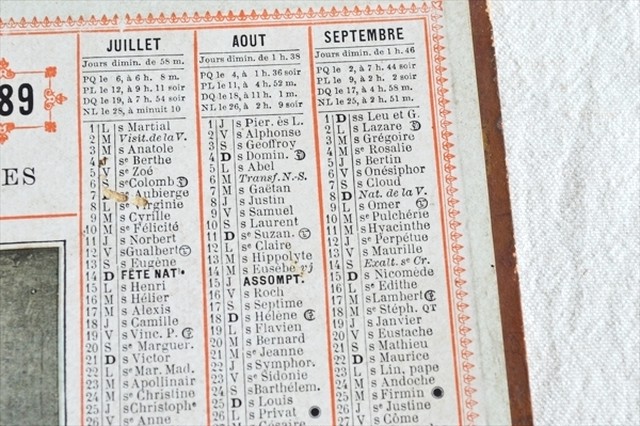 89
ES
JUILLET
Jours dimin. de 58 m.
PQ le 6, à 6 h. 8 m.
PL le 12, à 9 h. 11 soir
DQ le 19, à 7 h. 54 soir
NL le 28, à minuit 10
1 L s Martial
2 M Visit. de la V.
3 M s Anatole
4 J se Berthe
5 V se Zoé
6 S se Colomb
7 Aubierge
8 L se Virginie
9 M s Cyrille
10 M se Félicité
11 J s Norbert
12 V s Gualbert
13 S s Eugène
14 D FÊTE NATle
15 L s Henri
16 M s Hélier
17 M s Alexis
18 J s Camille
19 V s Vinc. P.
20 S se Marguer.
21 D s Victor
22 L se Mar. Mad.
23 M s Apollinair
24 M se Christine
25 J s Christophe
26 V se Anne
AOUT
Jours dimin. de 1 h. 38
PQ le 4, à 1 h. 36 soir
PL le 11, à 4 h. 52 m.
DQ le 18, à 11 h. 1 m.
NL le 26, à 2 h. 9 soir
1 J s Pier. ès L.
2 V s Alphonse
3 S s Geoffroy
4 D s Domin.
5 L s Abel
6 M Transf. N.-S.
7 M s Gaëtan
8 J s Justin
9 V s Samuel
10 S s Laurent
11 D se Suzan.
12 L se Claire
13 M s Hippolyte
14 M s Eusèbe vj
15 J ASSOMPT.
16 V s Roch
17 S s Septime
18 D se Hélène
19 L s Flavien
20 M s Bernard
21 M se Jeanne
22 J s Symphor.
23 V se Sidonie
24 S s Barthélem.
25 D s Louis
26 L s Privat
M s Césaire
SEPTEMBRE
Jours dimin. de 1 h. 46
PQ le 2, à 7 h. 44 soir
PL le 9, à 2 h. 2 soir
DQ le 17, à 4 h. 58 m.
NL le 25, à 2 h. 51 m.
1 D ss Leu et G.
2 L s Lazare
3 M s Grégoire
4 M se Rosalie
5 J s Bertin
6 V s Onésiphor
7 S s Cloud
8 D Nat. de la V.
9 L s Omer
10 M se Pulchérie
11 M s Hyacinthe
12 J se Perpétue
13 V s Maurille
14 S Exalt. se Cr.
15 D s Nicomède
16 L se Edithe
17 M s Lambert
18 M se Stéph. QT
19 J s Janvier
20 V s Eustache
21 S s Mathieu
22 D s Maurice
23 L s Lin, pape
24 M s Andoche
25 M s Firmin
26 J se Justine
27 V s Côme